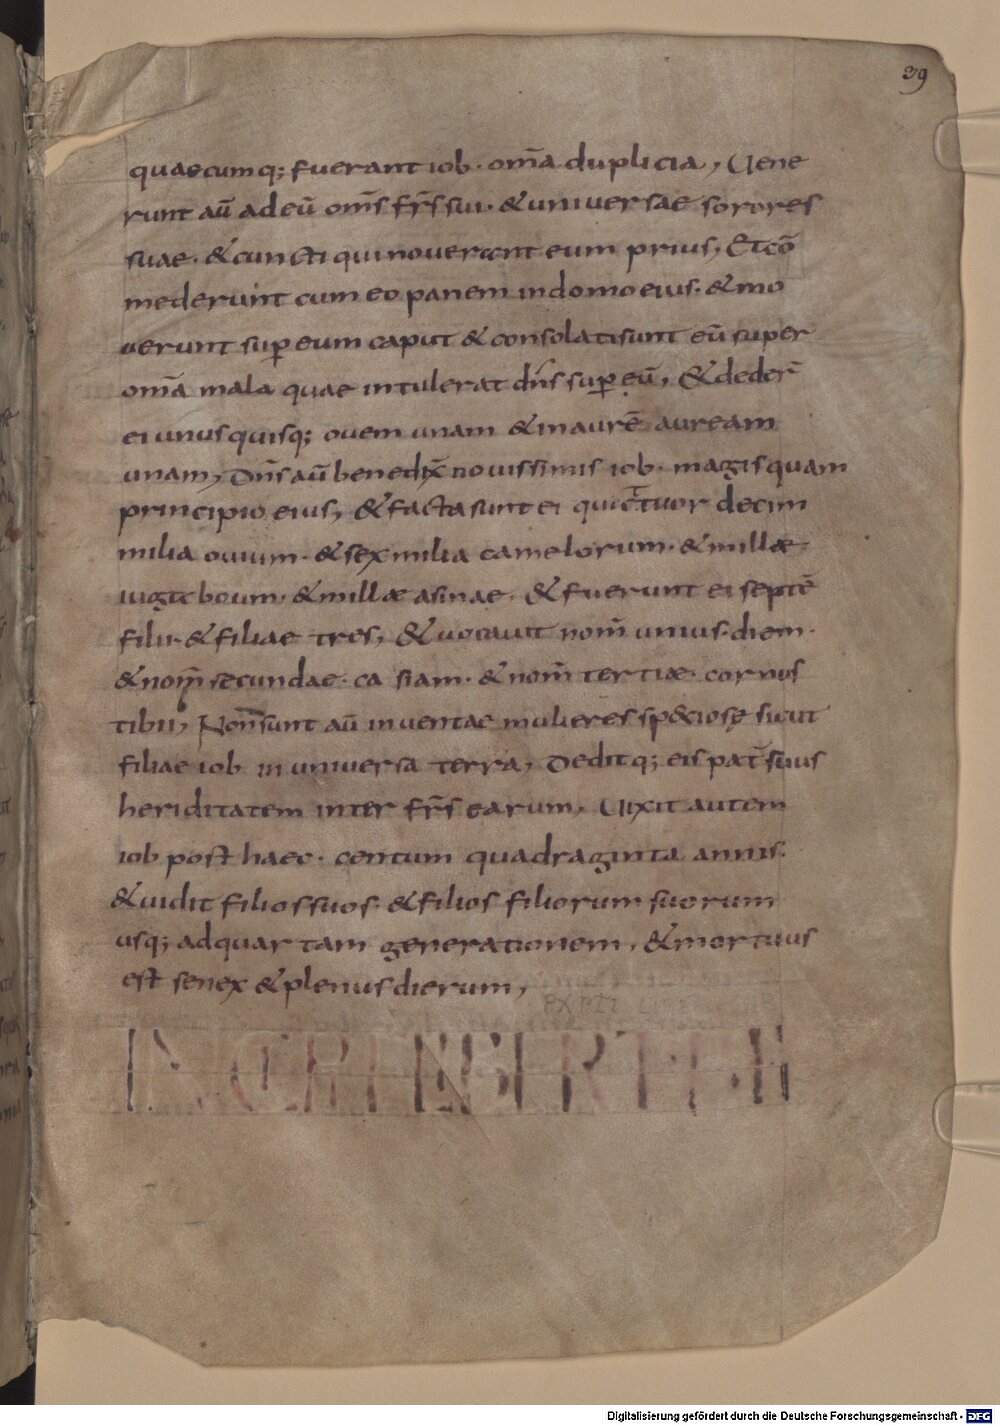 39
quaecumq; fuerant iob · om̄a duplicia, Uene
runt aū ad eū om̄s fr̄s sui · & universae sorores
suae · & cuncti qui noverant eum prius, Et cō
mederunt cum eo panem in domo eius · & mo
verunt sup̱ eum caput & consolati sunt eū super
om̄a mala quae intulerat dn̄s sup̱ eū, & deder̄
ei unusquisq; ovem unam & inaurē auream
unam, Dn̄s aū benedix̄ novissimis iob · magis quam
principio eius, & facta sunt ei quattuor decim
milia ovium · & sex milia camelorum · & millæ
iuga boum, & millæ asinae, & fuerunt ei septē
filii · & filiae tres, & vocavit nom̄ unius · diem ·
& nom̄ secundae · ca siam · & nom̄ tertiæ · cornus
tibii, Non sunt aū inventae mulieres sp&iosę sicut
filiae iob in universa terra, Deditq; eis pat̄ suus
heriditatem inter fr̄s earum, Uixit autem
iob post haec · centum quadraginta annis ·
& vidit filios suos · & filios filiorum suorum
usq; ad quartam generationem, & mortuus
est senex & plenus dierum,
Digitalisierung gefördert durch die Deutsche Forschungsgemeinschaft - DFG